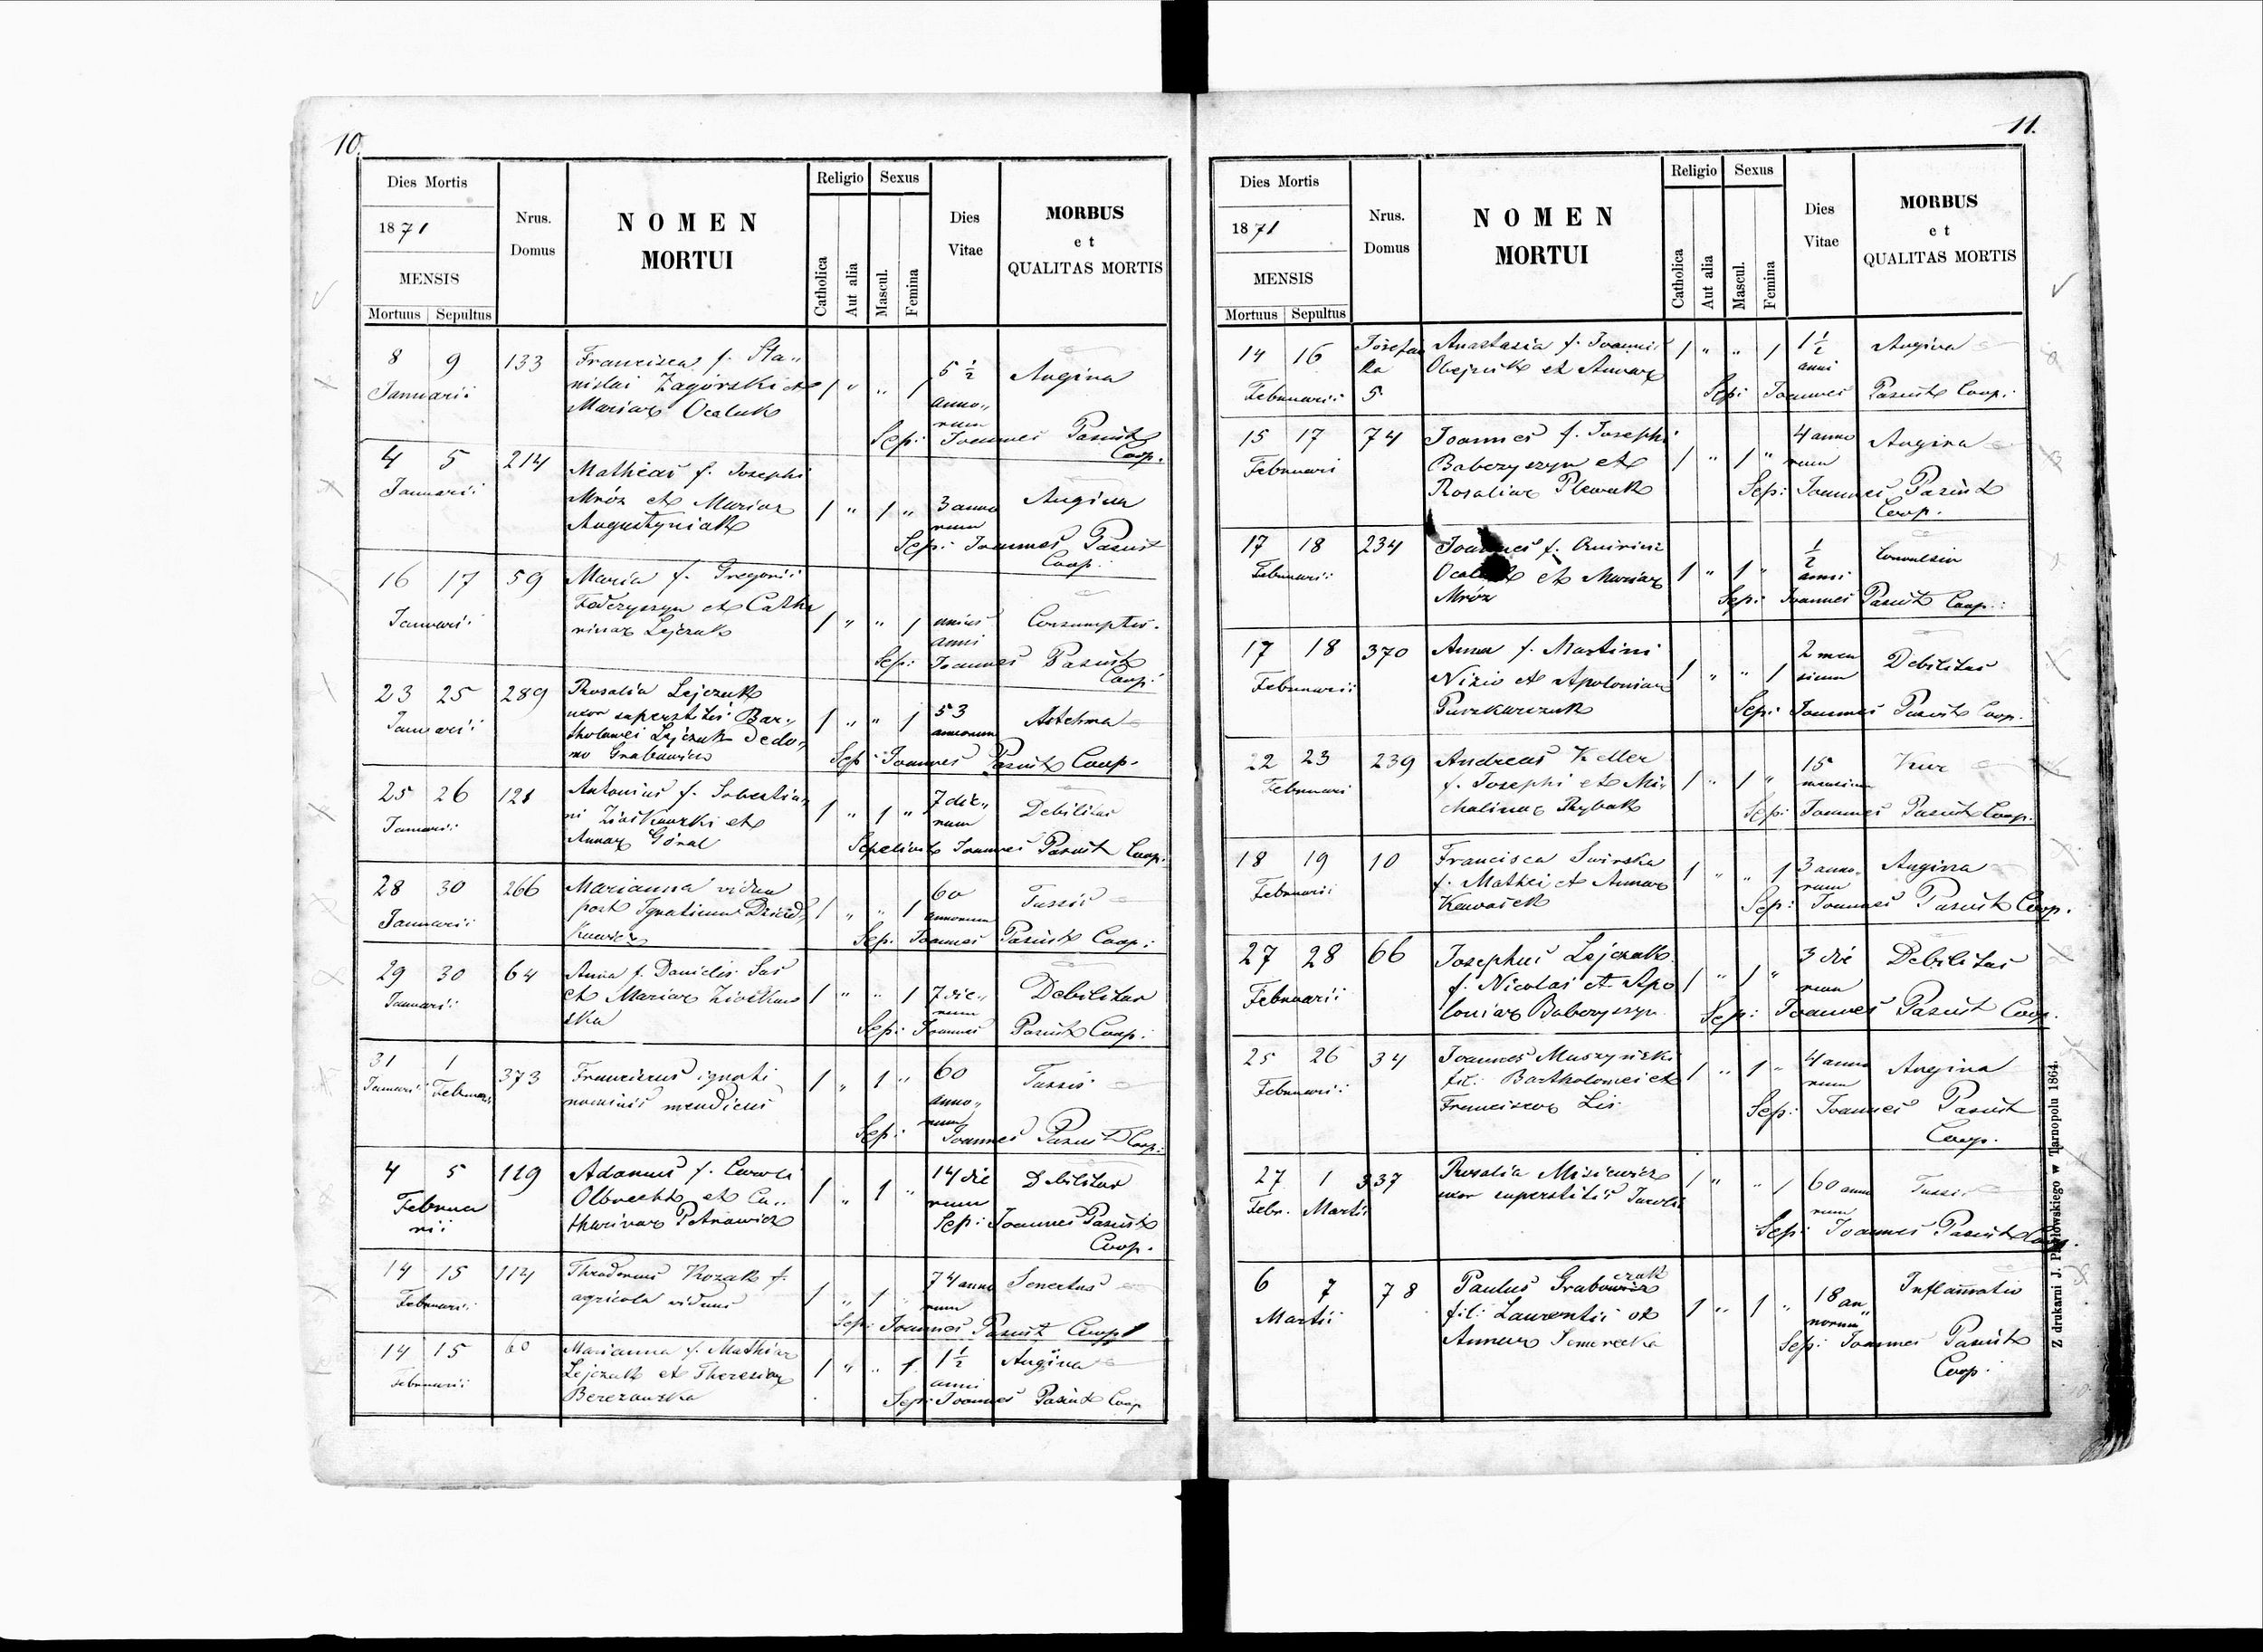 10.
Dies Mortis
1871
MENSIS
Mortuus Sepultus
Nrus. Domus
NOMEN
MORTUI
Religio
Catholica
Aut alia
Sexus
Mascul.
Femina
Dies Vitae
MORBUS
et
QUALITAS MORTIS
8 9 133 Francisca f. Sta„
Januarii
nislai Zagórski et
Mariae Ocaluk
1 „ „ 1
5 ½
anno„
rum
Angina
Sep: Joannes Pasiut
Coop.
4 5 214 Matheas f. Josephi
Januarii
Mróz et Mariae
Augustyniak
1 „ 1 „
3 anno
rum
Angina
Sep: Joannes Pasiut
Coop.
16 17 59 Maria f. Gregorii
Januarii
Fedczyszyn et Catha
rinae Lejczak
1 „ „ 1
unius
anni
Consumptio.
Sep: Joannes Pasiut
Coop:
23 25 289 Rosalia Lejczuk
Januarii
uxor superstitis Bar„
tholomei Lejczuk de do„
mo Grabowicz
1 „ „ 1
53
annorum
Astehma
Sep: Joannes Pasiut Coop.
25 26 121 Antonius f. Sebastia„
Januarii
ni Ziółkowski et
Annae Góral
1 „ 1 „
7 die„
rum
Debilitas
Sepelivit Joannes Pasiut Coop.
28 30 266 Marianna vidua
Januarii
post Ignatium
1 „ „ 1
60
annorum
Tussis
Sep: Joannes Pasiut Coop:
29 30 64 Anna f. Danielis Sas
Januarii
et Mariae Ziółkow
ska
1 „ „ 1
7 die„
rum
Debilitas
Sep: Joannes Pasiut Coop:
31 1 373 Franciscus ignoti
Januarii Februarii
nominis mendicus
1 „ 1 „
60
anno„
rum
Tussis
Sep: Joannes Pasiut Coop:
4 5 119 Adamus f. Caroli
Februa
rii
Olbrecht et Ca„
tharinae Petrowicz
1 „ 1 „
14 die
rum
Debilitas
Sep: Joannes Pasiut
Coop.
14 15 114 Kozak f.
Februarii
agricola viduus
1 „ 1 „
74 anno
rum
Senectus
Sep: Joannes Pasiut Coop
14 15 60 Marianna f. Mathiae
Februarii
Lejczuk et Theresiae
Berezowska
1 „ „ 1
1 ½
anni
Angina
Sep: Joannes Pasiut Coop
11.
Dies Mortis
1871
MENSIS
Mortuus Sepultus
Nrus. Domus
NOMEN
MORTUI
Religio
Catholica
Aut alia
Sexus
Mascul.
Femina
Dies Vitae
MORBUS
et
QUALITAS MORTIS
14 16 Józefów
ka
5
Februarii
Anastasia f. Joannis
Olejnik et Annae
1 „ „ 1
1 ½
anni
Angina
Sep: Joannes Pasiut Coop:
15 17 74 Joannes f. Josephi
Februari
Babczyszyn et
Rosaliae Plewak
1 „ 1 „
4 anno
rum
Angina
Sep: Joannes Pasiut
Coop.
17 18 234 Joannes f. Quirini
Februarii
et Mariae
Mróz
1 „ 1 „
½
anni
Convulsio
Sep: Joannes Pasiut Coop:
17 18 370 Anna f. Martini
Februarii
Nizio et Apoloniae
Puszkarczuk
1 „ „ 1
2 men
sium
Debilitas
Sep: Joannes Pasiut Coop.
22 23 239 Andreas Keller
Februari
f. Josephi et Mi„
chalinae Rybak
1 „ 1 „
15
mensium
Kur
Sep: Joannes Pasiut Coop.
18 19 10 Francisca Swirska
Februarii
f. Mathei et Annae
1 „ „ 1
3 anno„
rum
Angina
Sep: Joannes Pasiut Coop.
27 28 66 Josephus Lejczak
Februarii
f. Nicolai et Apo
loniae Babczyszyn
1 „ 1 „
3 die
rum
Debilitas
Sep: Joannes Pasiut Coop.
25 26 34 Joannes Muszyński
Februarii
fil. Bartholomei et
Franciscae Lis
1 „ 1 „
4 anno
rum
Angina
Sep: Joannes Pasiut
Coop.
27 1 337 Rosalia Misiewicz
Febr. Martii
uxor superstitis Caroli
1 „ „ 1
60 anno
rum
Tussis
Sep: Joannes Pasiut Coop.
6 7 78 Paulus Grabowicz
czuk
Martii
fil: Laurentii et
Annae
1 „ 1 „
18 an„
norum
Inflamatio
Sep: Joannes Pasiut
Coop.
Z drukarni J. Pawłowskiego w Tarnopolu 1864.